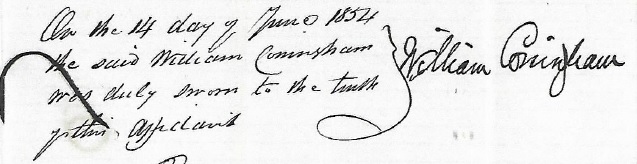 On the 14 day of June 1854
the said William Coningham William Coningham
was duly sworn to the truth
of this Affidavit